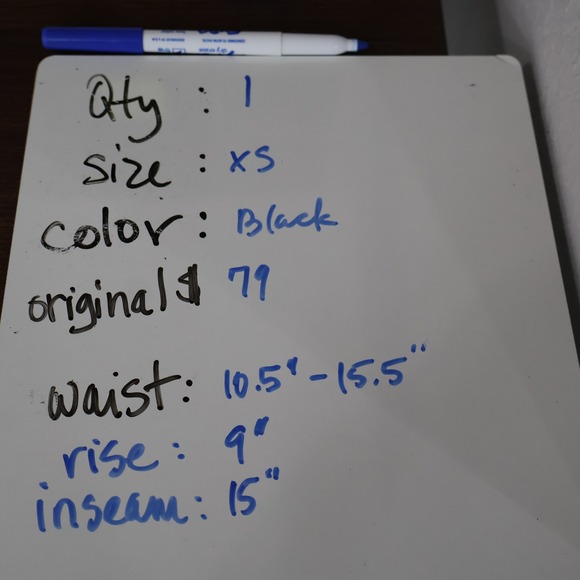 Qty : 1
size : XS
color : Black
original $ 79
waist : 10.5" - 15.5"
rise : 9"
inseam : 15"